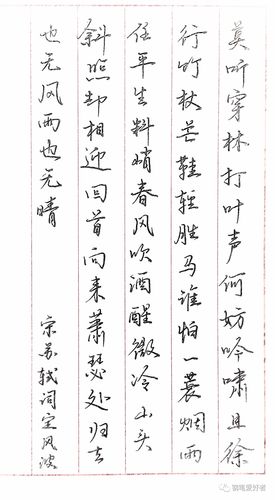 莫听穿林打叶声何妨吟啸且徐
行竹杖芒鞋轻胜马谁怕一蓑烟雨
任平生料峭春风吹酒醒微冷山头
斜照却相迎回首向来萧瑟处归去
也无风雨也无晴
宋苏轼词定风波
钢笔爱好者